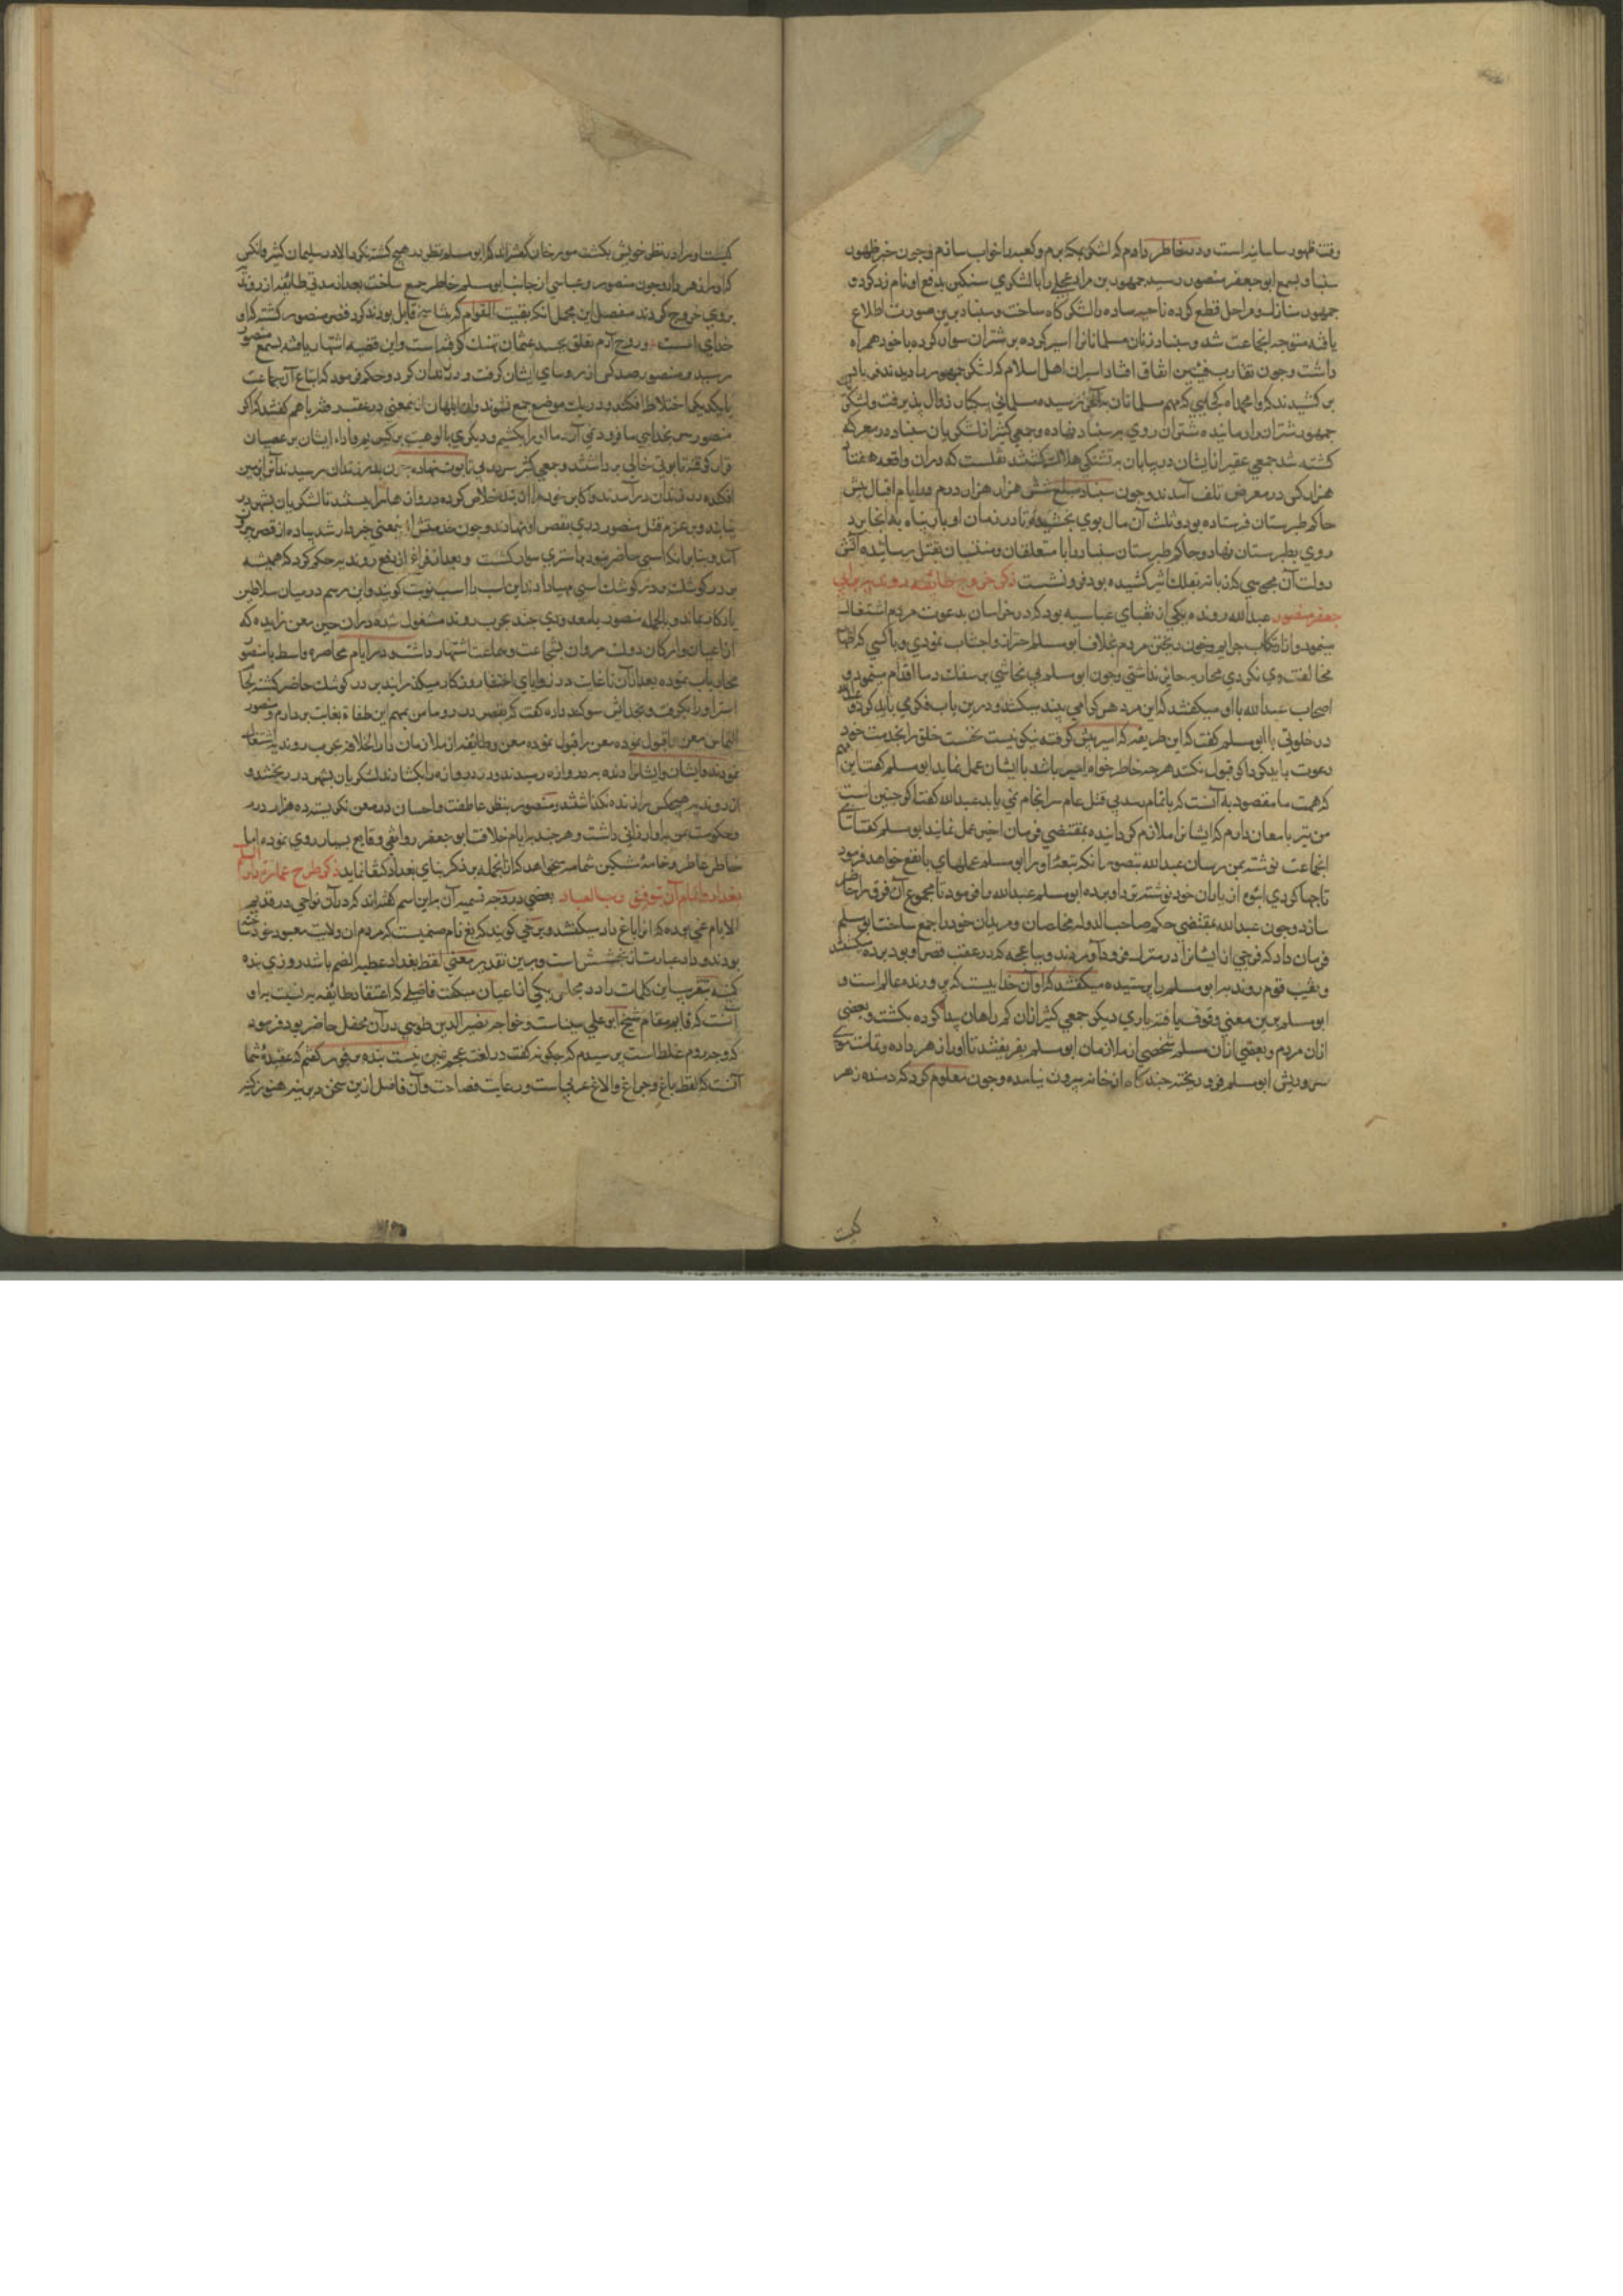 وقت ظهور ساسانیه است و در خاطر دارم که لشکر بمکه برم و کعبه را خراب سازم و چون خبر ظهور
سنباد بسمع ابو جعفر منصور رسید جمهور بن مراد عجلی را با لشکری سنکین بدفع او نام زد کرد و
جمهور منازل و مراحل قطع کرده ناحیه ساده را لشکرکاه ساخت و سنباد برین صورت اطلاع
یافته متوجه انجماعت شد و سنباد زنان مسلمانانرا اسیر کرده بر شتران سوار کرده با خود همراه
داشت و چون تقارب فئتین اتفاق افتاد اسیران اهل اسلام که لشکر جمهور را دیدند فریاد
بر کشیدند که وا محمداه کجایی که مهم مسلمانان رسیده مسلمانی زوال پذیرفت و لشکر
جمهور شتران را رمانیده شتران روی بر سنباد نهاده و جمعی کثیر از لشکریان سنباد در معرکه
کشته شد جمعی ازیشان در بیابان بر تشنکی هلاک شدند نقلست که دران واقعه هفتاد
هزار کس در معرض تلف آمدند و چون سنباد مبلغ شش هزار هزار درم در ایام اقبال پیش
حاکم طبرستان فرستاده بود و ثلث آن مال بوی بخشیده تا در زمان ادبار پناه بدانجا برد
روی بطبرستان نهاد و حاکم طبرستان سنباد را با متعلقان و منتسبان بقتل رسانیده آتش
دولت آن مجوسی که زبانه بفلک اثیر کشیده بود فرو نشست ذکر خروج طایفه روندیه بر ابی
جعفر منصور عبدالله رونده یکی از نقبای عباسیه بود که در خراسان بدعوت مردم اشتغال
مینمود و از ارتکاب جرایم و خون ریختن مردم بخلاف ابو مسلم احتراز و اجتناب نمودی و با کسی که اظهار
مخالفت وی نکردی محاربه جایز نداشتی و چون ابو مسلم بی تحاشی بر سفک دما اقدام مینمود
اصحاب عبدالله با او میکفتند که این مرد هر کرا می بیند میکشد و درین باب فکری باید کرد و عبدالله
در خلوتی با ابو مسلم کفت که این طریقه که امیر پیش کرفته نیکو نیست نخست خلق را بخدمت خود
دعوت باید کرد اکر قبول نکنند هر چه خاطر خواه امیر باشد با ایشان عمل نماید ابو مسلم کفت این مهم
که همت ما مقصود به آنست که باتمام رسد بی قتل عام سرانجام نمی یابد عبدالله کفت اکر چنین است
من نیز یاران دارم که ایشانرا ملازم کردانیده بمقتضی فرمان امیر عمل نمایند ابو مسلم کفت اسامی
انجماعت نوشته بمن رسان عبدالله تصور انکه تبعه او را ابو مسلم عملهای با نفع خواهد فرمود
تا چهار کردی انبوه از یاران خود نوشته نزد او برده ابو مسلم عبدالله را فرمود تا مجموع آن فرق را حاضر
سازد و چون عبدالله بمقتضی حکم صاحب الدوله مخلصان و مریدان خود را جمع ساخت ابو مسلم
فرمان داد که فوجی از ایشانرا در منزلی فرود آوردند و بباغچه که در عقب قصر او بود برده میکشتند
و بقیه قوم روندیه ابو مسلم را پرستیده میکفتند که او آن خداییست که پرورنده عالم است و
ابو مسلم برین معنی وقوف یافته باری دیکر جمعی کثیر ازان کمراهان پیدا کرده بکشت و بعضی
ازان مردم و بعضی ازان مسلم شخصی از ملازمان ابو مسلم بفریفتند تا او را زهر داده و تمامت موی
سر و ریش ابو مسلم فرو ریخته چند کاه از خانه بیرون نیامده و چون معلوم کرد که دهنده زهر
کیست
کیست او را در نظر خویش بکشت مورخان کفته اند که ابو مسلم بنظر در هیچ کشته نکرد الا در سلیمان کثیر و انکس
که او را زهر داد و چون منصور عباسی از جانب ابو مسلم خاطر جمع ساخت بعد از مدتی طایفه از روندیه
بر وی خروج کردند مفصل این مجمل انکه بقیت القوم که بتناسخ قایل بودند کرد قصر منصور کشته که او
خدای است و روح آدم تعلق بجسد عثمان نهیک کرفته است و این قضیه اشتهار یافته بسمع منصور
رسید و منصور صد کس از روسای ایشان کرفت و در زندان کرد و حکم فرمود که اتباع آن جماعت
با یکدیکر اختلاط نکنند و در یک موضع جمع نشوند و ان ابلهان ازینمعنی در غضب رفته با هم کفتند که اکر
منصور بخدایی سر فرود نمی آرد ما او را بکشیم و دیکری بالوهیت بر کیریم و آراء ایشان بر عصیان
قرار کرفته تابوتی خالی بر داشتند و جمعی کثیر سر در پی تابوت نهاده چون بدر زندان رسیدند آنرا بزمین
افکنده در زندان در آمدند و اکابر خود را از بند خلاص کرده دروازه ها را بستند تا لشکریان بشهر در
نیایند و بر عزم قتل منصور روی بقصر او نهادند و چون خلیفه از اینمعنی خبردار شد پیاده از قصر بیرون
آمد و بنابر انکه اسبی حاضر نبود بر استری سوار کشت و بعد از فراغ از دفع روندیه حکم کرد که همیشه
بر در کوشک اسبی مهیا دارند این اسب را اسب نوبت کویند و این رسم در میان سلاطین
یادکار بماند و بالجمله منصور با معدودی چند بحرب روندیه مشغول شد دران حین معن زایده که
از اعیان و ارکان دولت مروان بشجاعت و جلادت اشتهار داشت و در ایام محاصره واسط با منصور
محاربات نموده بعد ازان تا غایت در زوایای اختفا روزکار میکذرانید بر در کوشک حاضر کشته لجام
استر او را بکرفت و بخدایش سوکند داده کفت که بقصر در رو تا من مهم این طغاة بغات بردارم و منصور
التماس معن را قبول نموده معن را قبول نموده معن و طایفه از ملازمان دار الخلافه بحرب روندیه اشتغال
نمودند و ایشان را بدر دروازه رسیدند و دروازه را بکشادند لشکریان بشهر در ریختند و
از روندیه هیچکس را زنده نکذاشتند و منصور بنظر عاطفت و احسان در معن نکریسته ده هزار درم
و حکومت یمن بدو ارزانی داشت و هر چند در ایام خلافت ابو جعفر دوانقی وقایع بسیار روی نموده اما
خاطر عاطر و خامه مشکین شمامه میخواهد که ازانجمله بر ذکر بنای بغداد اکتفا نماید ذکر طرح عمارت دار السلم
بغداد و اتمام آن بتوفیق رب العباد بعضی در وجه تسمیه آن باین اسم کفته اند که در آن نواحی در قدیم
الایام باغی بوده که انرا باغ داد میکفتند و برخی کویند که بغ نام صنمیست که مردم ان ولایت معبود خود دانسته
بودند و داد عبارت از بخشش است و برین تقدیر معنی لفظ بغداد عطیة الصنم باشد روزی بنده
کمینه بتقریب این کلمات را در مجلس یکی از اعیان میکفت فاضلی که اعتقاد طایفه به نسبت باو
آنست که قایم مقام شیخ ابو علی سیناست و خواجه نصیر الدین طوسی در آن محفل حاضر بود فرمود
که وجه دوم غلط است پرسیدم که چکونه کفت در لغت عجم غین نیست بنده فقیر کفتم که عقیده شما
آنست که لفظ باغ و چراغ و الاغ عربی است و رعایت فصاحت و آن فاضل ازین سخن متنبه هنوز